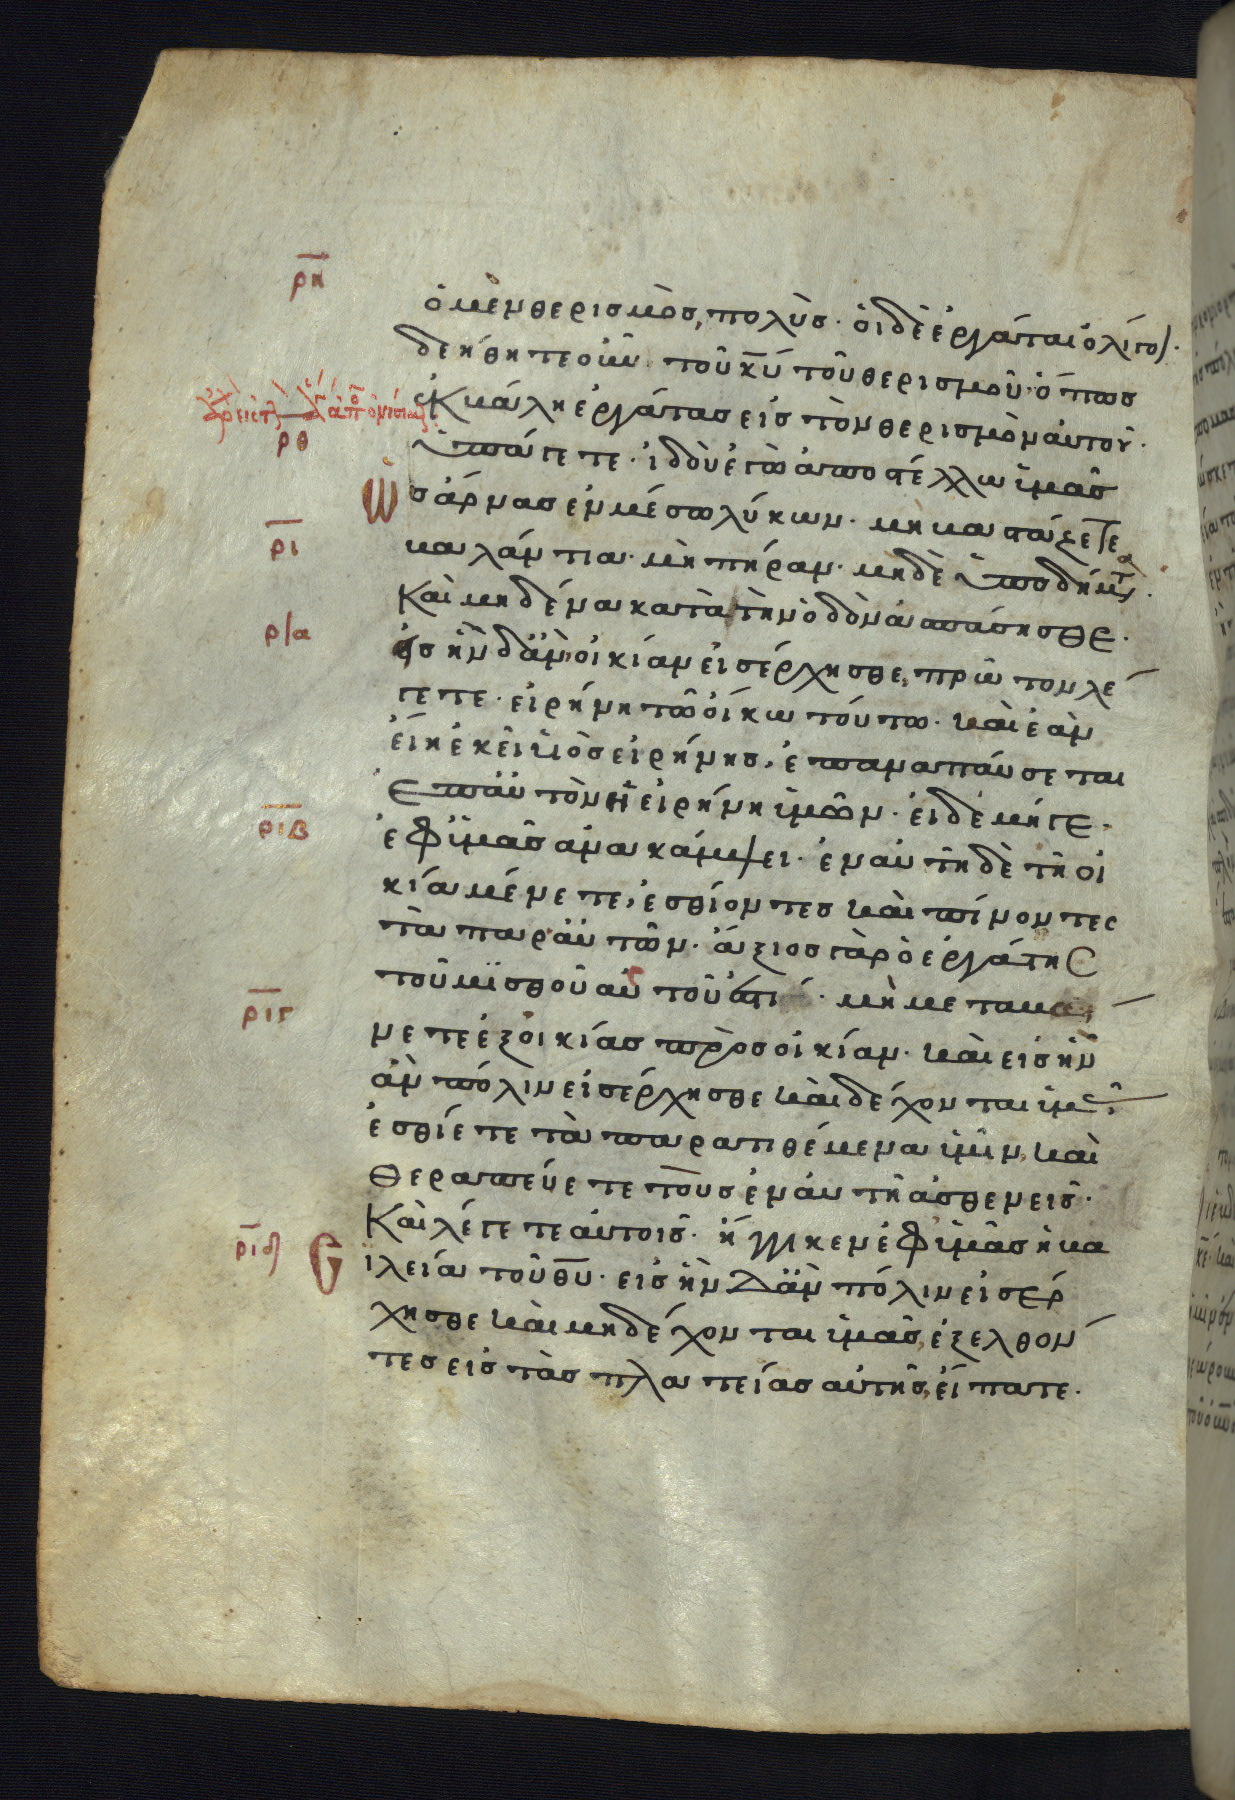 ρη
ὁ μὲν θερισμὸσ, πολὺσ· οἱ δὲ ἐργάται ὀλίγοι·
δεήθητε οὖν τοῦ κ̅υ̅ τοῦ θερισμοῦ· ὅπωσ
ἐκβάλη ἐργάτασ εἰσ τὸν θερισμὸν αὐτοῦ·
ρθ
ὑπάγετε· ἰδοὺ ἐγὼ ἀποστέλλω ὑμᾶσ
ὡσ ἄρνασ ἐν μέσω λύκων· μὴ βαστάζετε
ρι
βαλάντια· μὴ πήραν· μηδὲ ὑποδήματα·
Καὶ μηδένα κατὰ τὴν ὁδὸν ἀσπάσησθε·
ρια
εἰσ ἣν δ᾽ἂν οἰκίαν εἰσέρχησθε, πρῶτον λέ
γετε· εἰρήνη τῶ οἴκω τούτω· καὶ ἐὰν
ἦ ἐκεῖ υἱὸσ εἰρήνησ, ἐπαναπαύσεται
ἐπ᾽αὐτὸν ἡ εἰρήνη ὑμῶν· εἰ δὲ μήγε·
ριβ
ἐφ᾽ὑμᾶσ ἀνακάμψει· ἐν αὐτῆ δὲ τῆ οἰ
κία μένετε, ἐσθίοντεσ καὶ πίνοντεσ
τὰ παρ᾽αὐτῶν· ἄξιοσ γὰρ ὁ ἐργάτησ
τοῦ μισθοῦ αὐτοῦ ἐστί· μὴ μεταβαί
ριγ
νετε ἐξ οἰκίασ πρὸσ οἰκίαν· καὶ εἰσ ἣν
ἂν πόλιν εἰσέρχησθε καὶ δέχονται ὑμᾶσ
ἐσθίετε τὰ παρατιθέμενα ὑμῖν, καὶ
θεραπεύετε τοὺσ ἐν αὐτῆ ἀσθενεῖσ·
Καὶ λέγετε αὐτοῖσ· ἤγγικεν ἐφ᾽ὑμᾶσ ἡ βα
ριδ
σιλεία τοῦ θ̅υ̅· εἰσ ἣν δ᾽ἂν πόλιν εἰσέρ
χησθε καὶ μὴ δέχονται ὑμᾶσ, ἐξελθόν
τεσ εἰσ τὰσ πλατείασ αὐτῆσ, εἴπατε·